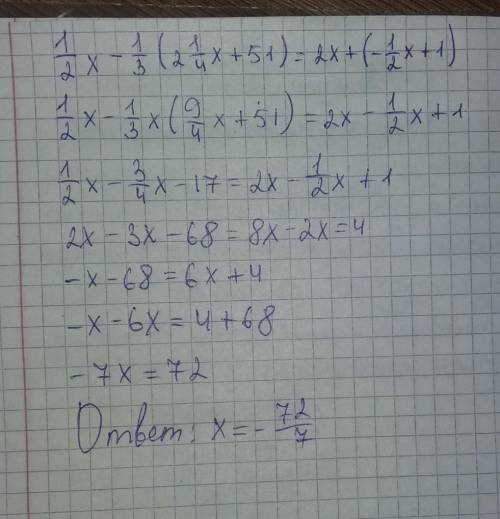 1/2 x - 1/3 (2 1/4 x + 51) = 2x + (-1/2 x + 1)
1/2 x - 1/3 x (9/4 x + 51) = 2x - 1/2 x + 1
1/2 x - 3/4 x - 17 = 2x - 1/2 x + 1
2x - 3x - 68 = 8x - 2x = 4
-x - 68 = 6x + 4
-x - 6x = 4 + 68
-7x = 72
Ответ: x = - 72/7